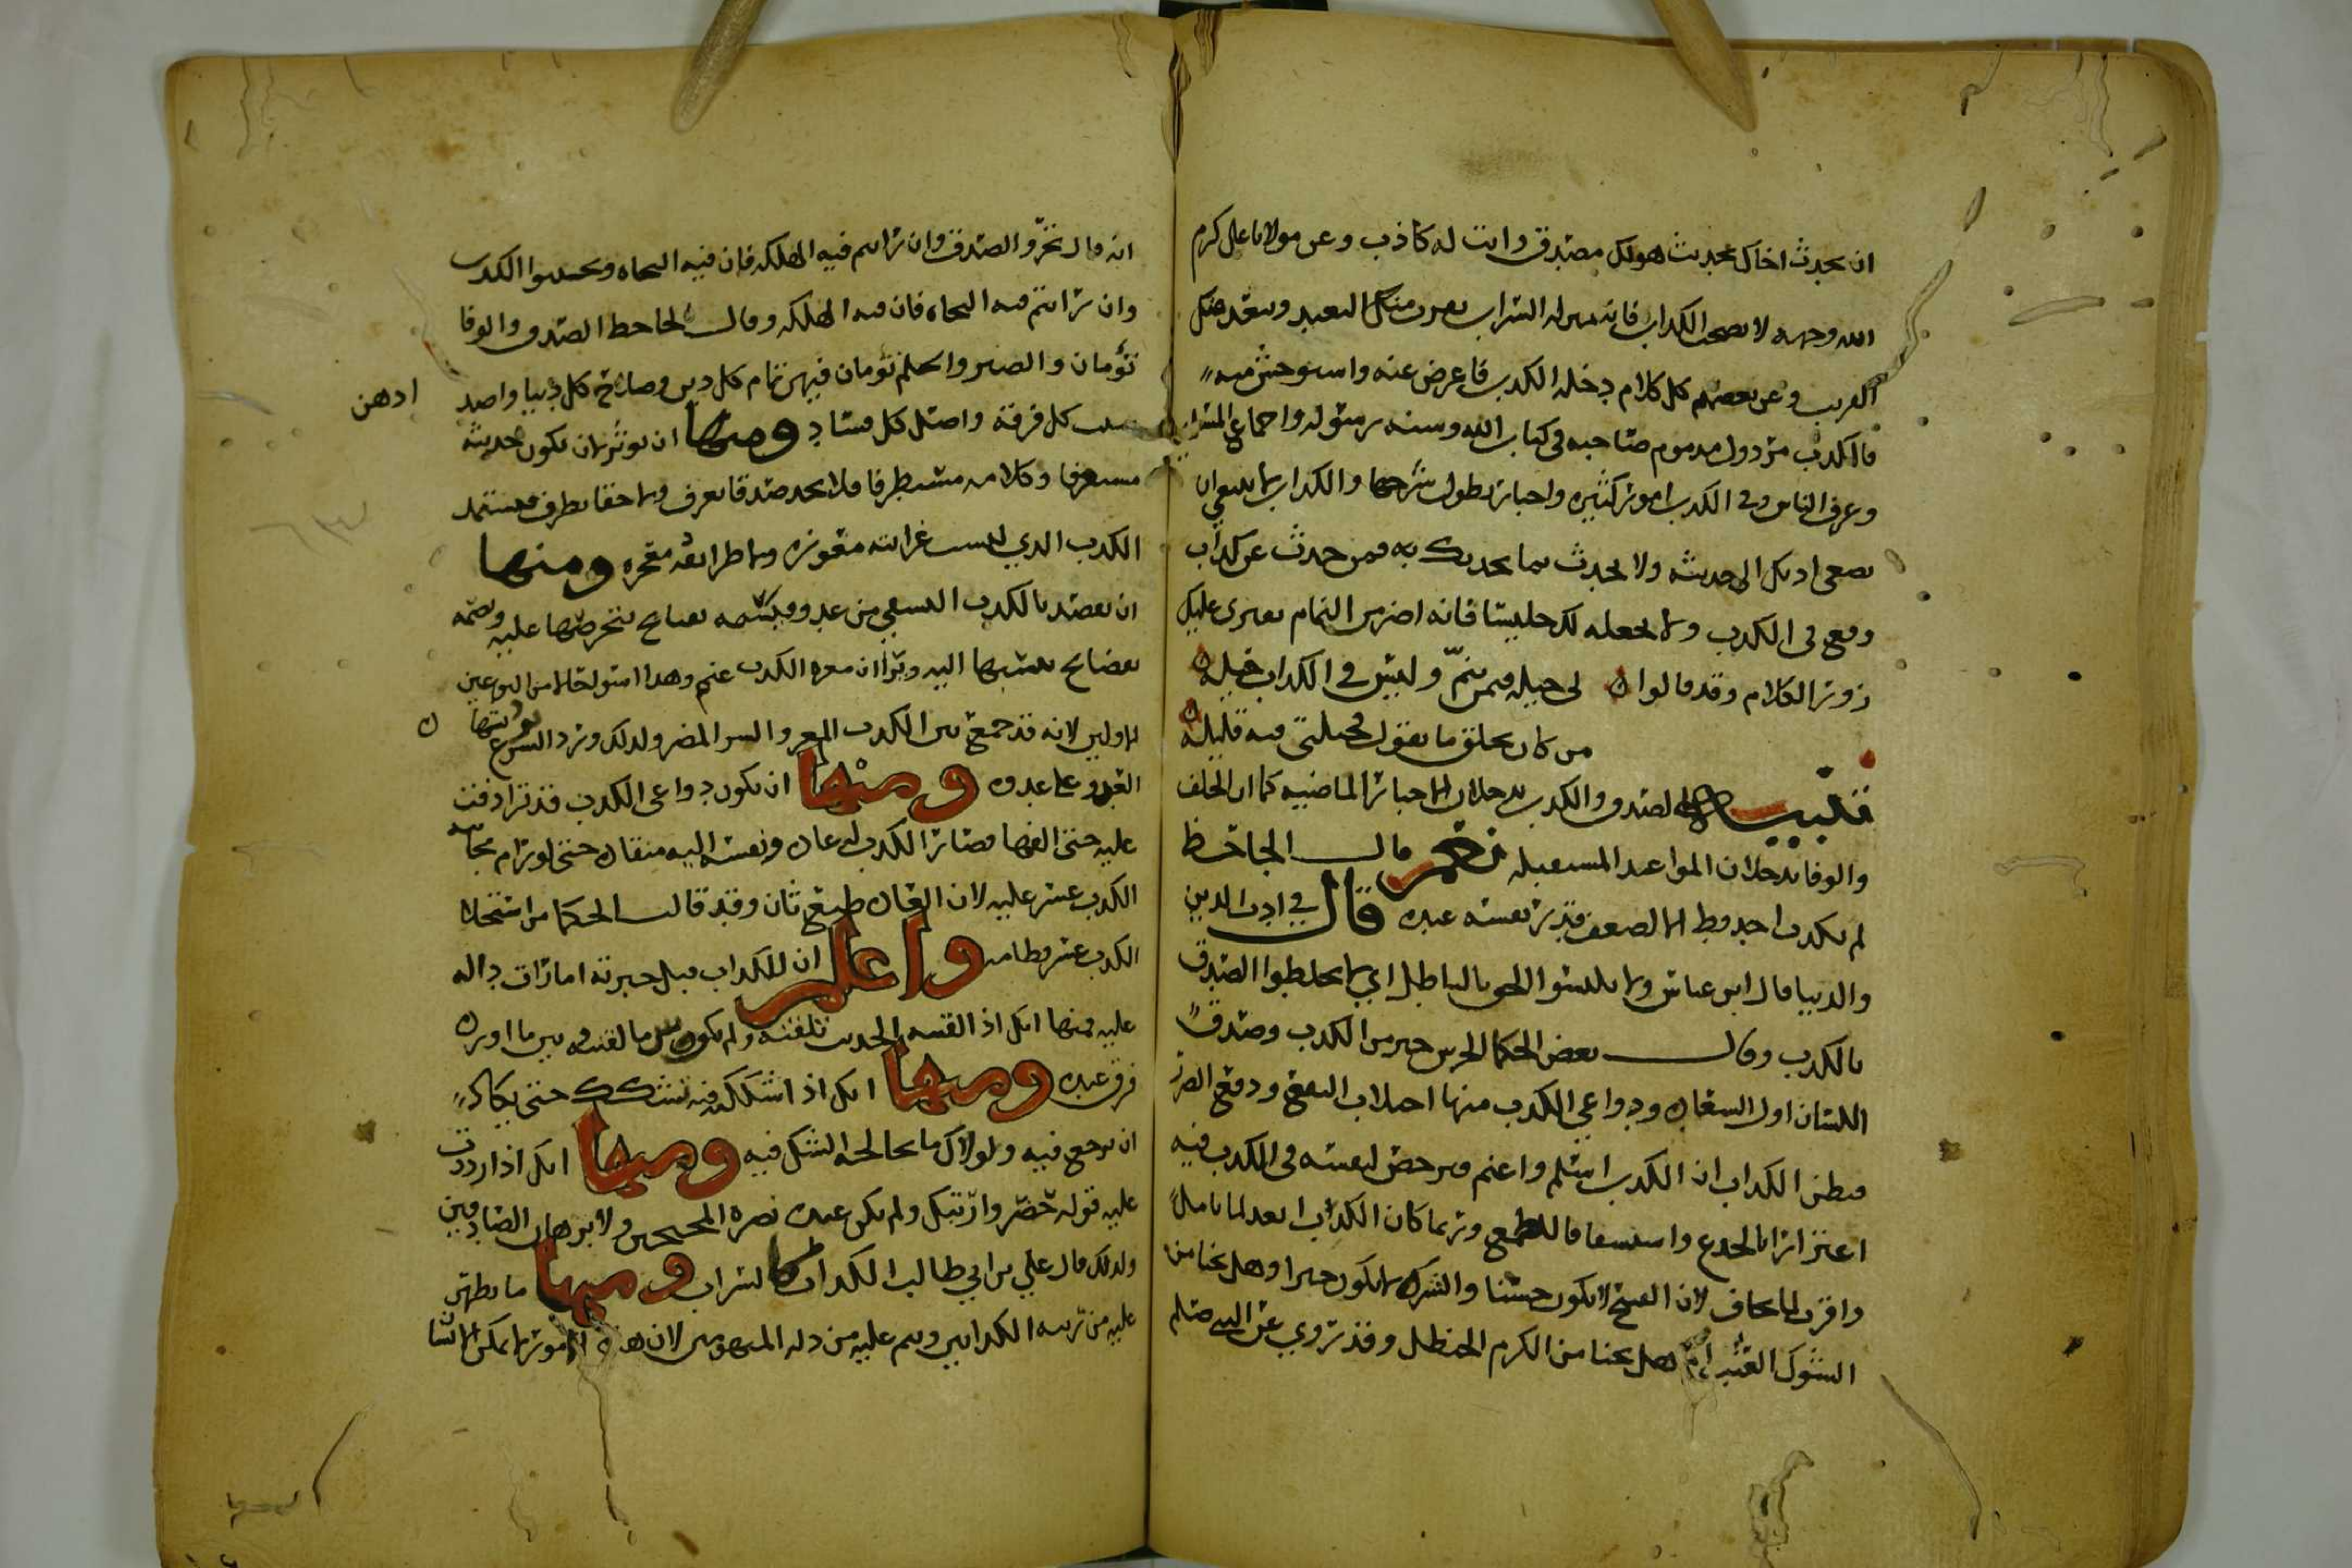 ان يحدث اخاك بحديث هو لك مصدق وانت له كاذب وعن مولانا علي كرم
الله وجهه لا تصحب الكذاب فانه بمنزلة السراب يقرب منك البعيد ويبعد منك
القريب وعن بعضهم كل كلام دخله الكذب فاعرض عنه واستوحش منه
فالكذب مردول مذموم صاحبه في كتاب الله وسنة رسوله واجماع
وعرف الناس وفي الكذب امور كثيرة واخبار يطول شرحها والكذاب لا ينبغي ان
تصغي اذنك الى حديثه ولا تحدث بما يحدثك به فمن حدث عن كذاب
وقع في الكذب ولا تجعله لك جليسا فانه اضر من النمام يفتري عليك
زور الكلام وقد قالوا لي حيلة فيمن ينم وليس في الكذاب حيلة
من كان يخلق ما يقول فحيلتي فيه قليلة
تنبيه الصدق والكذب يدخلان الاخبار الماضية كما ان الخلف
والوفا يدخلان المواعد المستقبلة نعم قال الجاحظ
لم يكذب احد قط الا لصغر قدر نفسه عنده قال في ادب الدين
والدنيا قال ابن عباس ولا تلبسوا الحق بالباطل اي لا تخلطوا الصدق
بالكذب وقال بعض الحكما الخرس خير من الكذب وصدق
اللسان اول السعادة ودواعي الكذب منها اجتلاب النفع ودفع الضر
فيظن الكذاب ان الكذب اسلم واغنم ويرخص لنفسه في الكذب فيه
اغترارا بالخدع واستشفافا للطمع وربما كان الكذاب ابعد لما يامل
واقرب لما يخاف لان القبيح لا يكون حسنا والشر لا يكون خيرا وهل يجنا من
الشوك العنب ام هل يجنا من الكرم الحنظل وقد روي عن النبي صلعم
انه قال تحروا الصدق وان رايتم فيه الهلكة فان فيه النجاة وتجنبوا الكذب
وان رايتم فيه النجاة فان فيه الهلكة وقال الجاحظ الصدق والوفا
توءمان والصبر والحلم توءمان فيهن تمام كل دين وصلاح كل دنيا واضد
ادهن
سبب كل فرقة واصل كل فساد ومنها ان يوثر ان يكون حديثه
مستعذبا وكلامه مستظرفا فلا يجد صدقا يعذب ولا حقا يظرف فيستحلي
الكذب الذي ليست غرائبه معوزة ولا طرائفه معجزة ومنها
ان يقصد بالكذب التشفي من عدو فيسمه بقبائح يخترعها عليه ويصفه
بفضائح ينسبها اليه ويرا ان معرة الكذب غنم وهذا اسوا حالا من النوعين
الاولين لانه قد جمع بين الكذب المعر والشر المضر ولذلك ورد الشرع برد شهادة
العدو على عدوه ومنها ان يكون دواعي الكذب قد ترادفت
عليه حتى الفها فصار الكذب له عادة ونفسه اليه منقادة حتى لو رام مجانبة
الكذب عسر عليه لان العادة طبع ثان وقد قالت الحكما من استحلا
الكذب عسر فطامه واعلم ان للكذاب قبل خبرته امارات دالة
عليه فمنها انك اذا لقنته الحديث تلقنه ولم يكن بين ما لقنته وبين ما اورده
فرق عنده ومنها انك اذا شككته فيه تشكك حتى يكاد
ان يرجع فيه ولولاك ما تخالجه الشك فيه ومنها انك اذا رددت
عليه قوله حصر وارتبك ولم يكن عنده نصرة المحتجين ولا برهان الصادقين
ولذلك قال علي بن ابي طالب الكذاب كالسراب ومنها ما يظهر
عليه من ريبة الكذابين وينم عليه من ذلة المتوهمين لان هذه امور لا يمكن الانسا